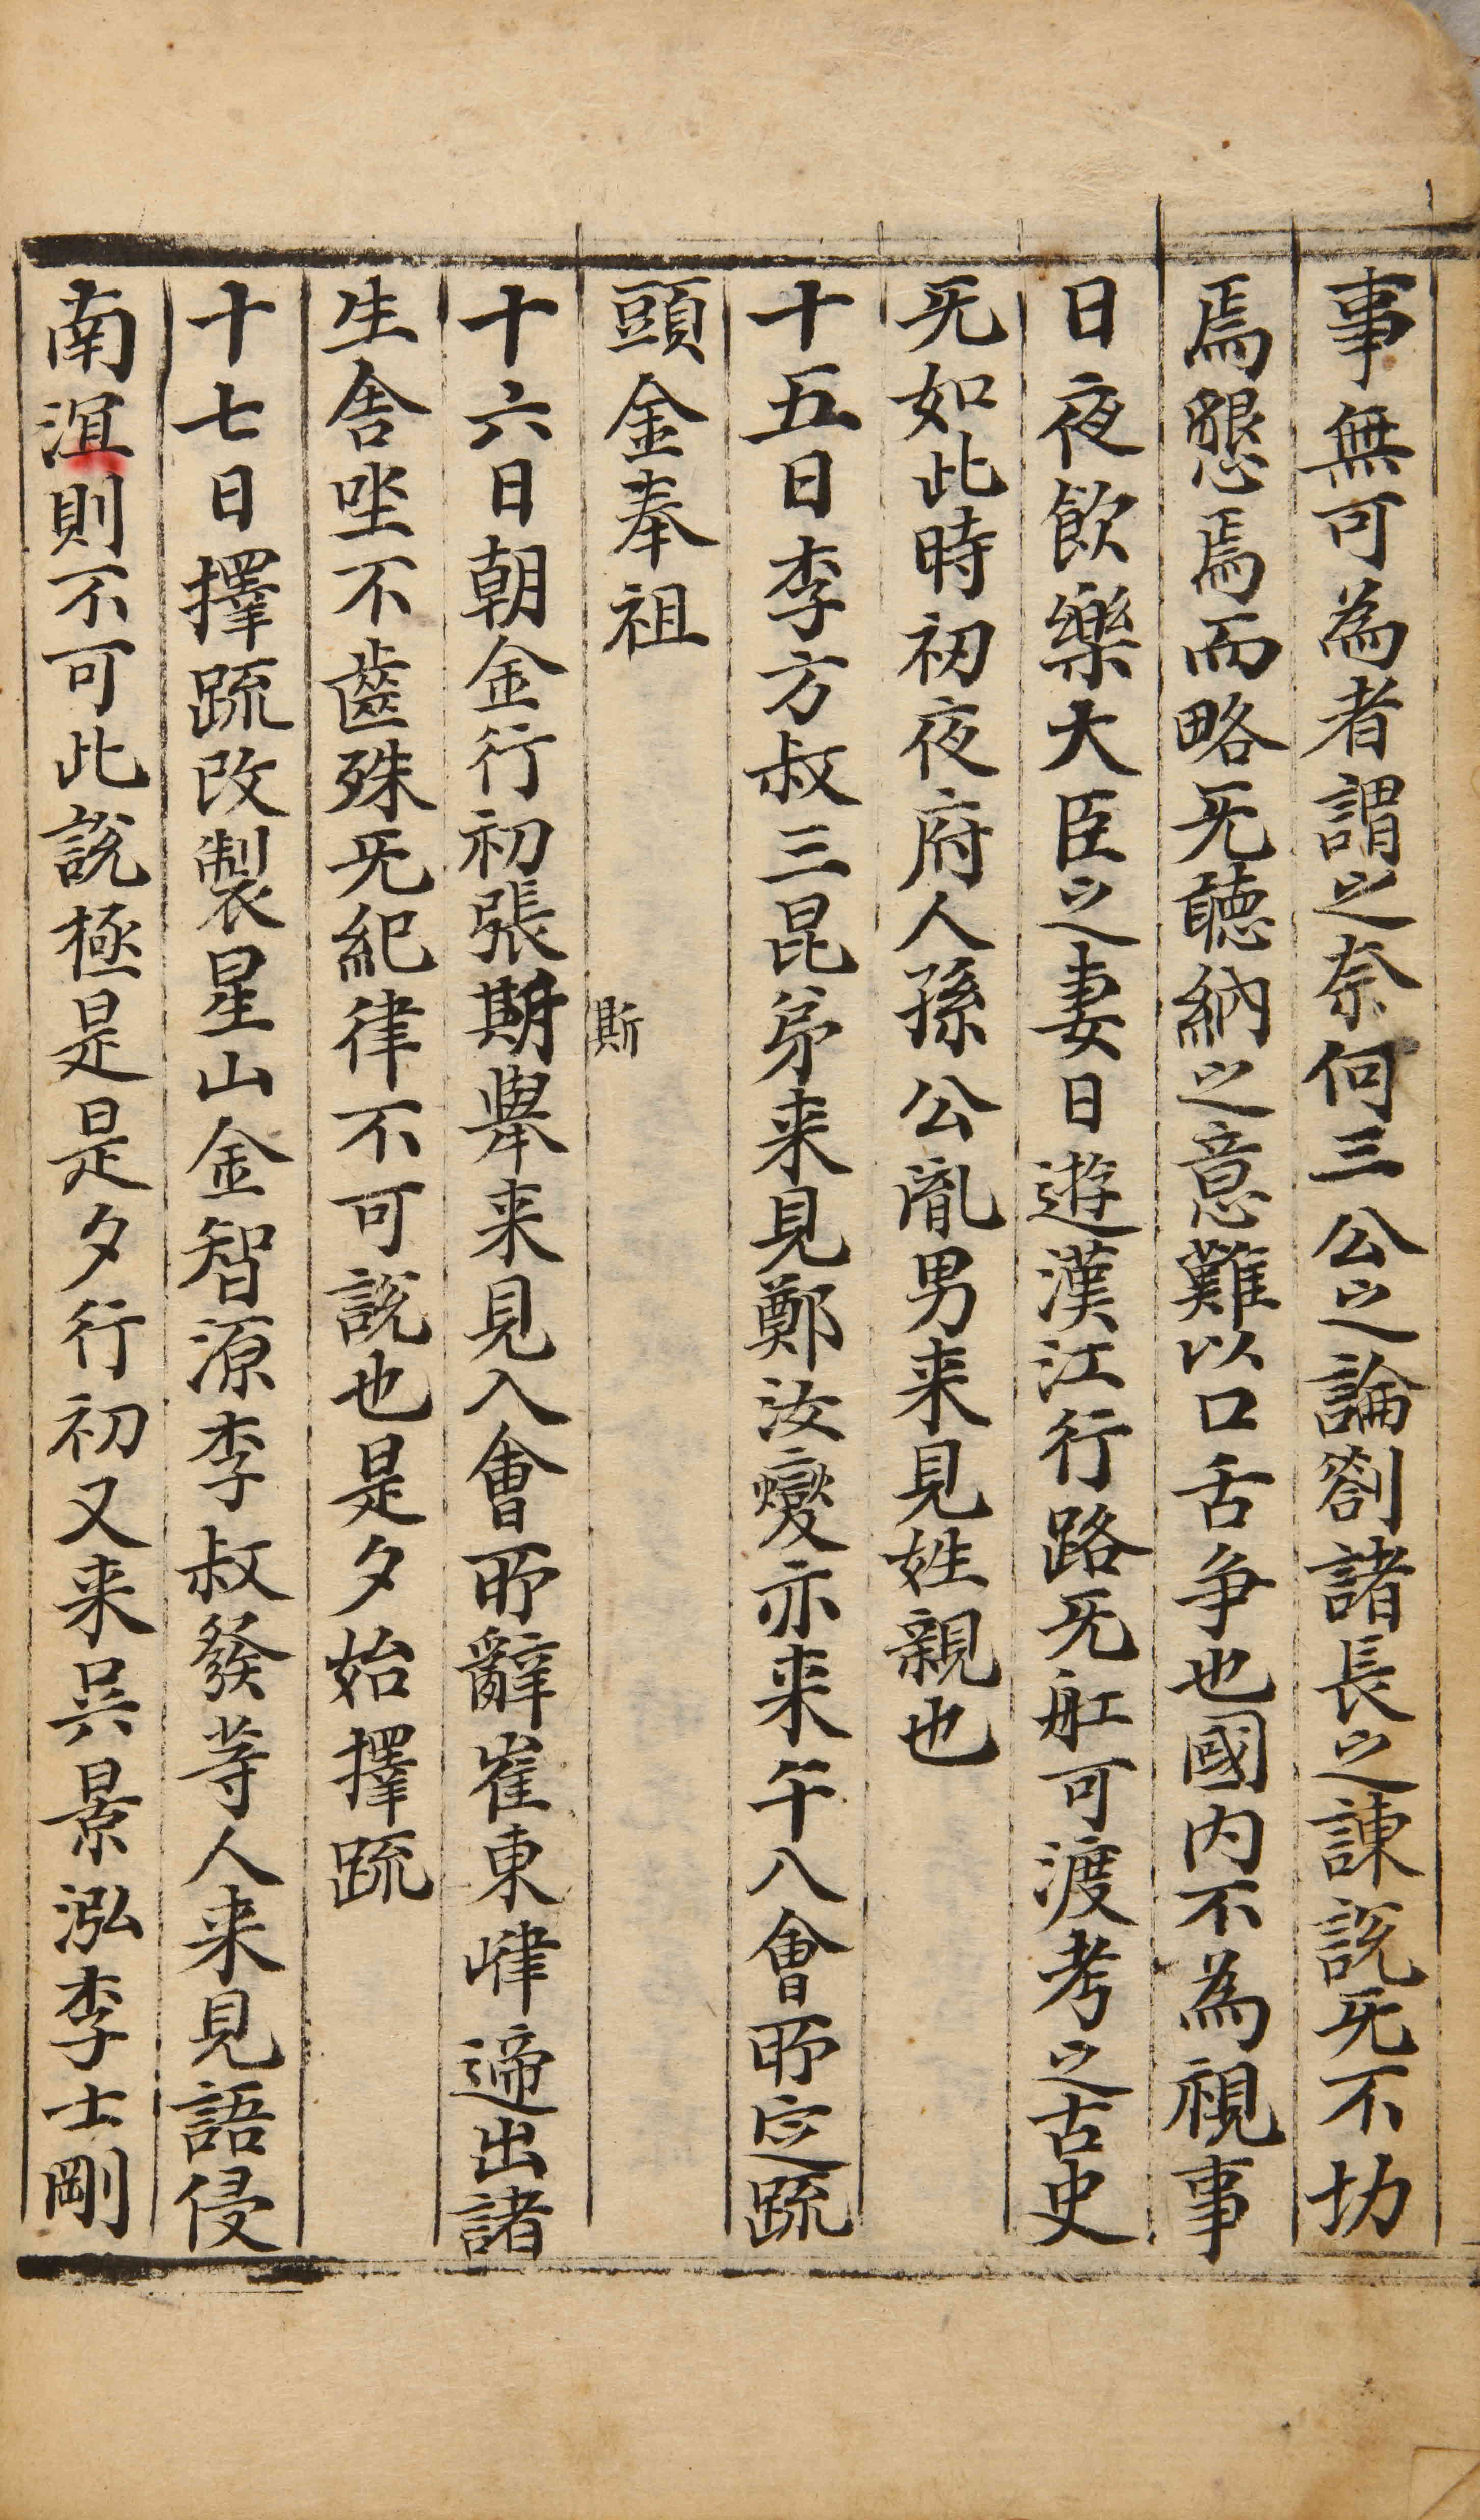 事無可為者謂之奈何三公之論劄諸長之諫說无不切
焉懇焉而略无聽納之意難以口舌争也國内不為視事
日夜飮樂大臣之妻日遊漢江行路无舡可渡考之古史
无如此時初夜府人孫公胤男来見姓親也
十五日李方叔三昆弟来見鄭汝燮亦来午入會所定疏
頭金奉祖
斯
十六日朝金行初張期舉来見入會所辭崔東嵂遞出諸
生舍坐不齒殊无紀律不可說也是夕始擇疏
十七日擇疏改製星山金智源李叔發等人来見語侵
南溟則不可此說極是是夕行初又来吳景泓李士剛